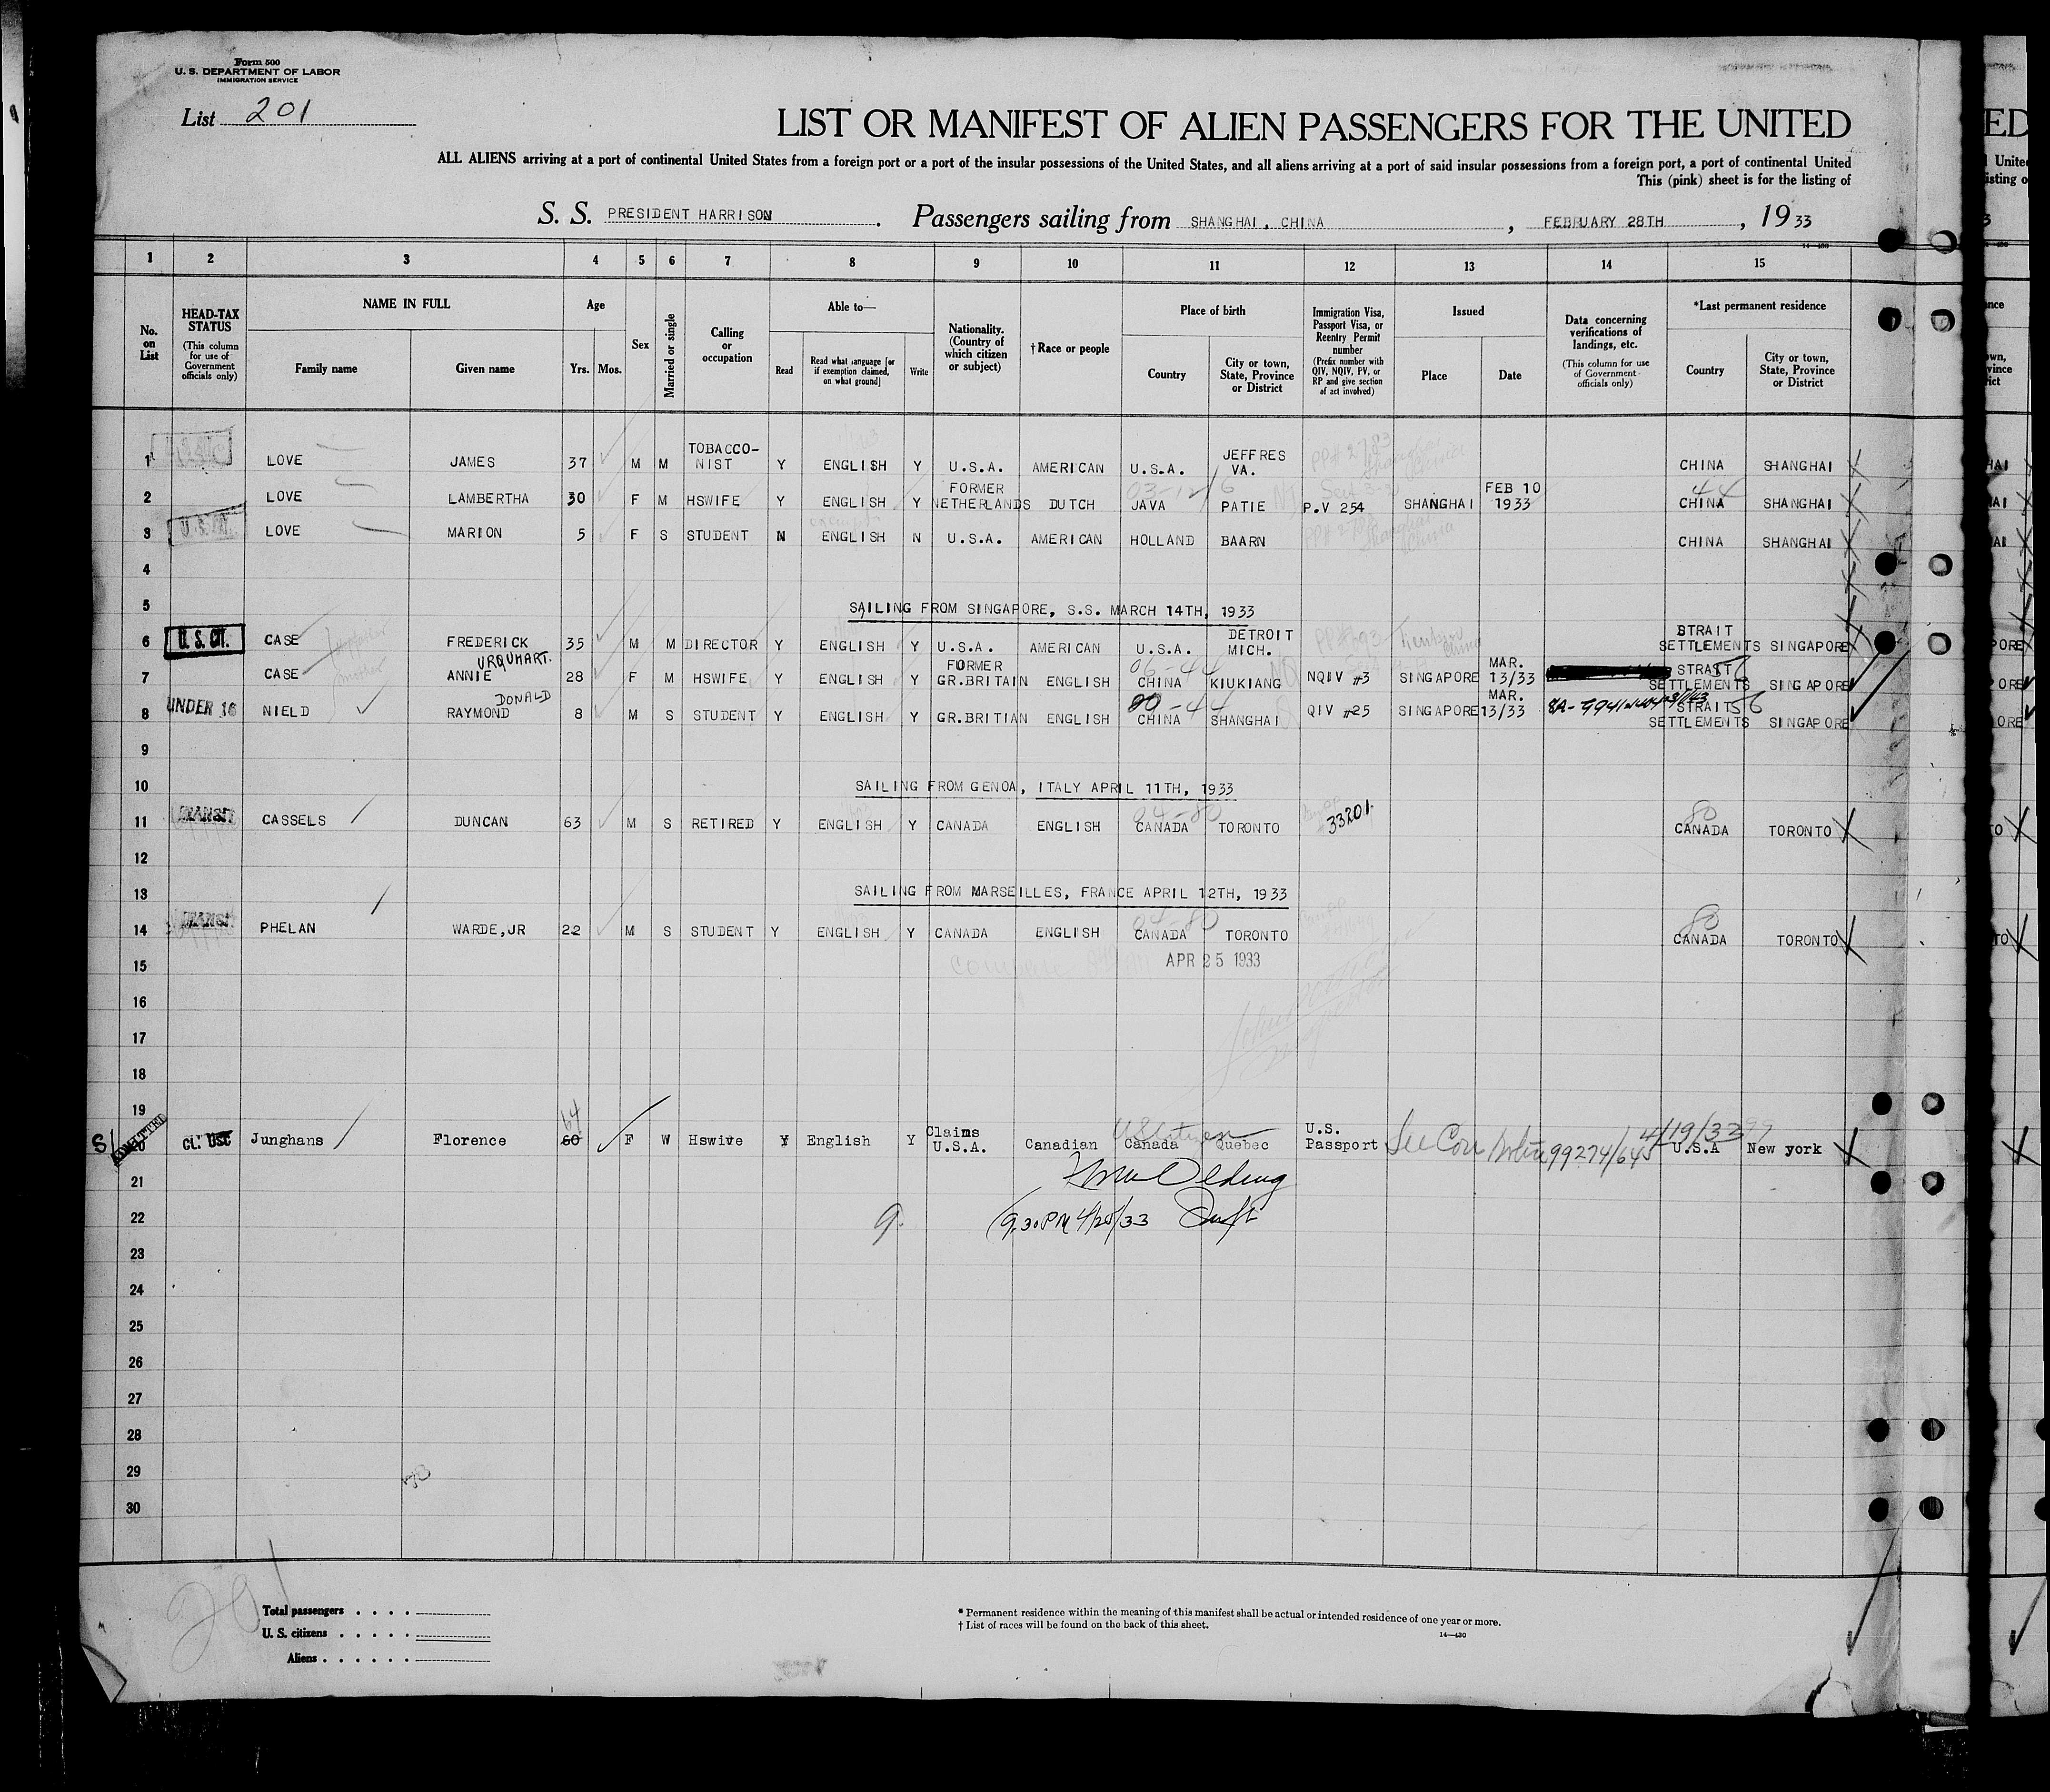 Form 500
U. S. DEPARTMENT OF LABOR
IMMIGRATION SERVICE
List 201
LIST OR MANIFEST OF ALIEN PASSENGERS FOR THE UNITED
ALL ALIENS arriving at a port of continental United States from a foreign port or a port of the insular possessions of the United States, and all aliens arriving at a port of said insular possessions from a foreign port, a port of continental United
This (pink) sheet is for the listing of
S. S. PRESIDENT HARRISON. Passengers sailing from SHANGHAI, CHINA, FEBRUARY 28TH, 19 33
14—430
1 2 3 4 5 6 7 8 9 10 11 12 13 14 15
No. on List
HEAD-TAX STATUS (This column for use of Government officials only)
NAME IN FULL
Family name Given name
Age
Yrs. Mos.
Sex
Married or single
Calling or occupation
Able to—
Read Read what language [or if exemption claimed, on what ground] Write
Nationality. (Country of which citizen or subject)
†Race or people
Place of birth
Country City or town, State, Province or District
Immigration Visa, Passport Visa, or Reentry Permit number (Prefix number with QIV, NQIV, PV, or RP and give section of act involved)
Issued
Place Date
Data concerning verifications of landings, etc. (This column for use of Government officials only)
*Last permanent residence
Country City or town, State, Province or District
1 LOVE JAMES 37 M M TOBACCO-NIST Y ENGLISH Y U.S.A. AMERICAN U.S.A. JEFFRES VA. CHINA SHANGHAI
2 LOVE LAMBERTHA 30 F M HSWIFE Y ENGLISH Y FORMER NETHERLANDS DUTCH JAVA PATIE P.V 254 SHANGHAI FEB 10 1933 44 CHINA SHANGHAI
3 LOVE MARION 5 F S STUDENT N ENGLISH N U.S.A. AMERICAN HOLLAND BAARN CHINA SHANGHAI
4
5 SAILING FROM SINGAPORE, S.S. MARCH 14TH, 1933
6 U.S. CIT. CASE FREDERICK 35 M M DIRECTOR Y ENGLISH Y U.S.A. AMERICAN U.S.A. DETROIT MICH. STRAIT SETTLEMENTS SINGAPORE
7 CASE ANNIE URQUHART. 28 F M HSWIFE Y ENGLISH Y FORMER GR.BRITAIN ENGLISH 06-44 CHINA KIUKIANG NQIV #3 SINGAPORE MAR. 13/33 STRAIT SETTLEMENTS SINGAPORE
8 UNDER 16 NIELD RAYMOND DONALD 8 M S STUDENT Y ENGLISH Y GR.BRITIAN ENGLISH CHINA SHANGHAI QIV #25 SINGAPORE MAR. 13/33 STRAIT 56 SETTLEMENTS SINGAPORE
9
10 SAILING FROM GENOA, ITALY APRIL 11TH, 1933
11 TRANSIT CASSELS DUNCAN 63 M S RETIRED Y ENGLISH Y CANADA ENGLISH 04-80 CANADA TORONTO 33201. 80 CANADA TORONTO
12
13 SAILING FROM MARSEILLES, FRANCE APRIL 12TH, 1933
14 TRANSIT PHELAN WARDE,JR 22 M S STUDENT Y ENGLISH Y CANADA ENGLISH 04-80 CANADA TORONTO 80 CANADA TORONTO
15 APR 25 1933
16
17
18
19
20 ADMITTED CL. USC Junghans Florence 60 64 F W Hswive Y English Y Claims U.S.A. Canadian Canada Quebec U.S. Passport 99274/645 4/19/33 U.S.A New york
21
22 9. 9.30 PM 4/25/33
23
24
25
26
27
28
29
30
Total passengers
U. S. citizens
Aliens
* Permanent residence within the meaning of this manifest shall be actual or intended residence of one year or more.
† List of races will be found on the back of this sheet.
14—430